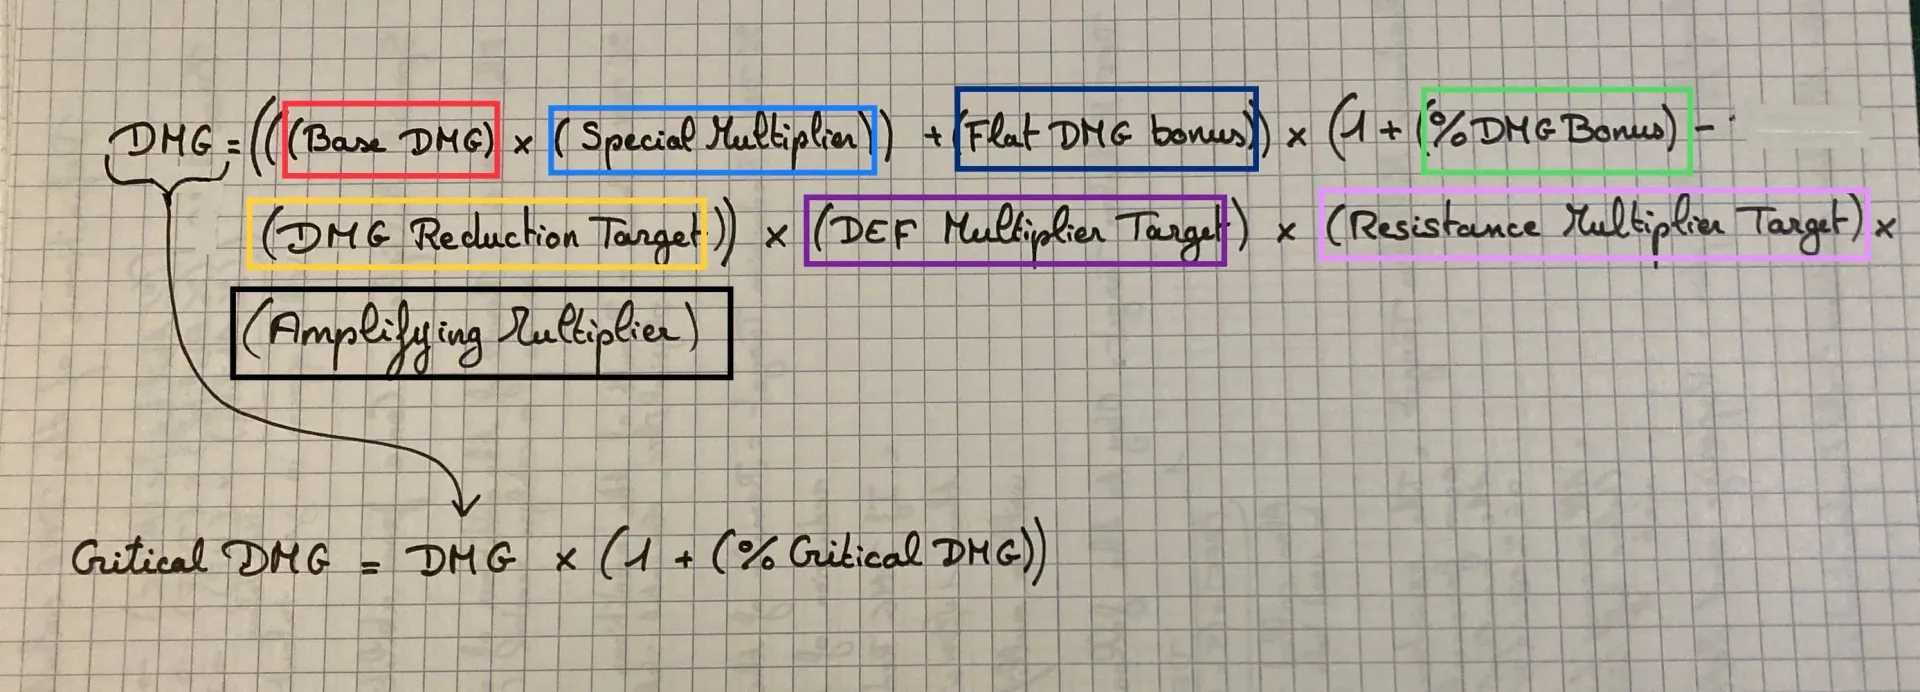 DMG = (((Base DMG) × (Special Multiplier)) + (Flat DMG bonus)) × (1 + (% DMG Bonus) -
(DMG Reduction Target)) × (DEF Multiplier Target) × (Resistance Multiplier Target) ×
(Amplifying Multiplier)
Critical DMG = DMG × (1 + (% Critical DMG))